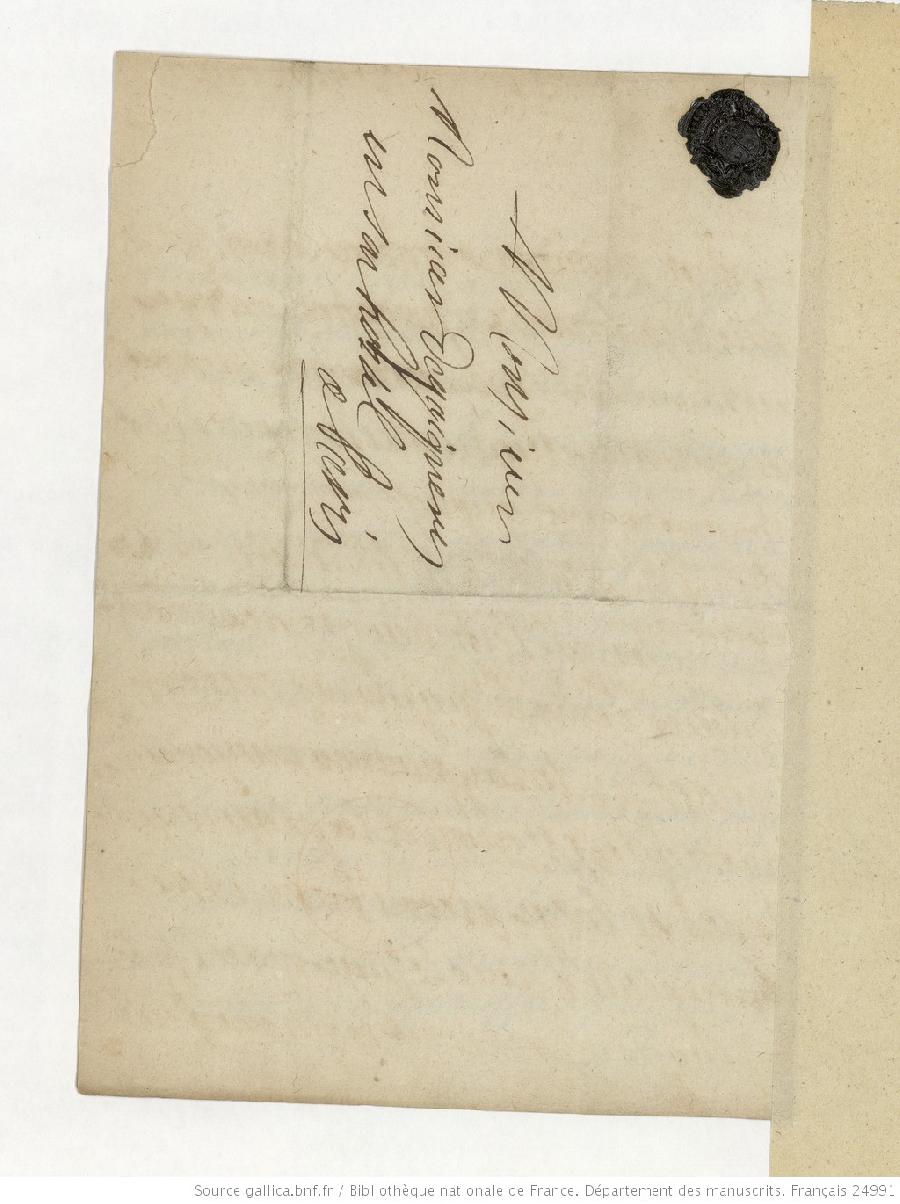 A Monsieur
Monsieur de gaignieres
en son hostel
a Paris
Source gallica.bnf.fr / Bibliothèque nationale de France. Département des manuscrits. Français 24991